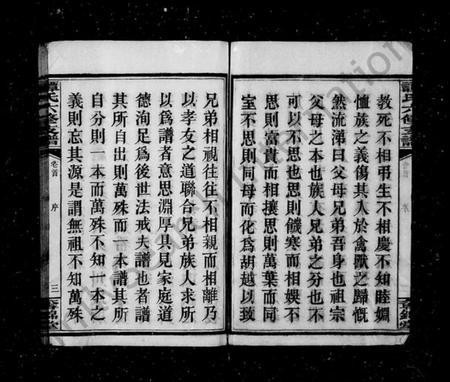 教死不相弔生不相慶不知睦婣
恤族之義傷其入於禽獸之歸慨
然流涕曰父母兄弟吾身也祖宗
父母之本也族人兄弟之分也不
可以不思也思則饑寒而相娛不
思則富貴而相攘思則萬葉而同
室不思則同母而化為胡越以致
兄弟相視往往不相親而相離乃
以孝友之道聯合兄弟族人求所
以為譜者意思淵厚具見家庭道
德洵足為後世法戒夫譜也者譜
其所自出則萬殊而一本譜其所
自分則一本而萬殊不知一本之
義則忘其源是謂無祖不知萬殊
譚氏六修支譜
卷首
序
三